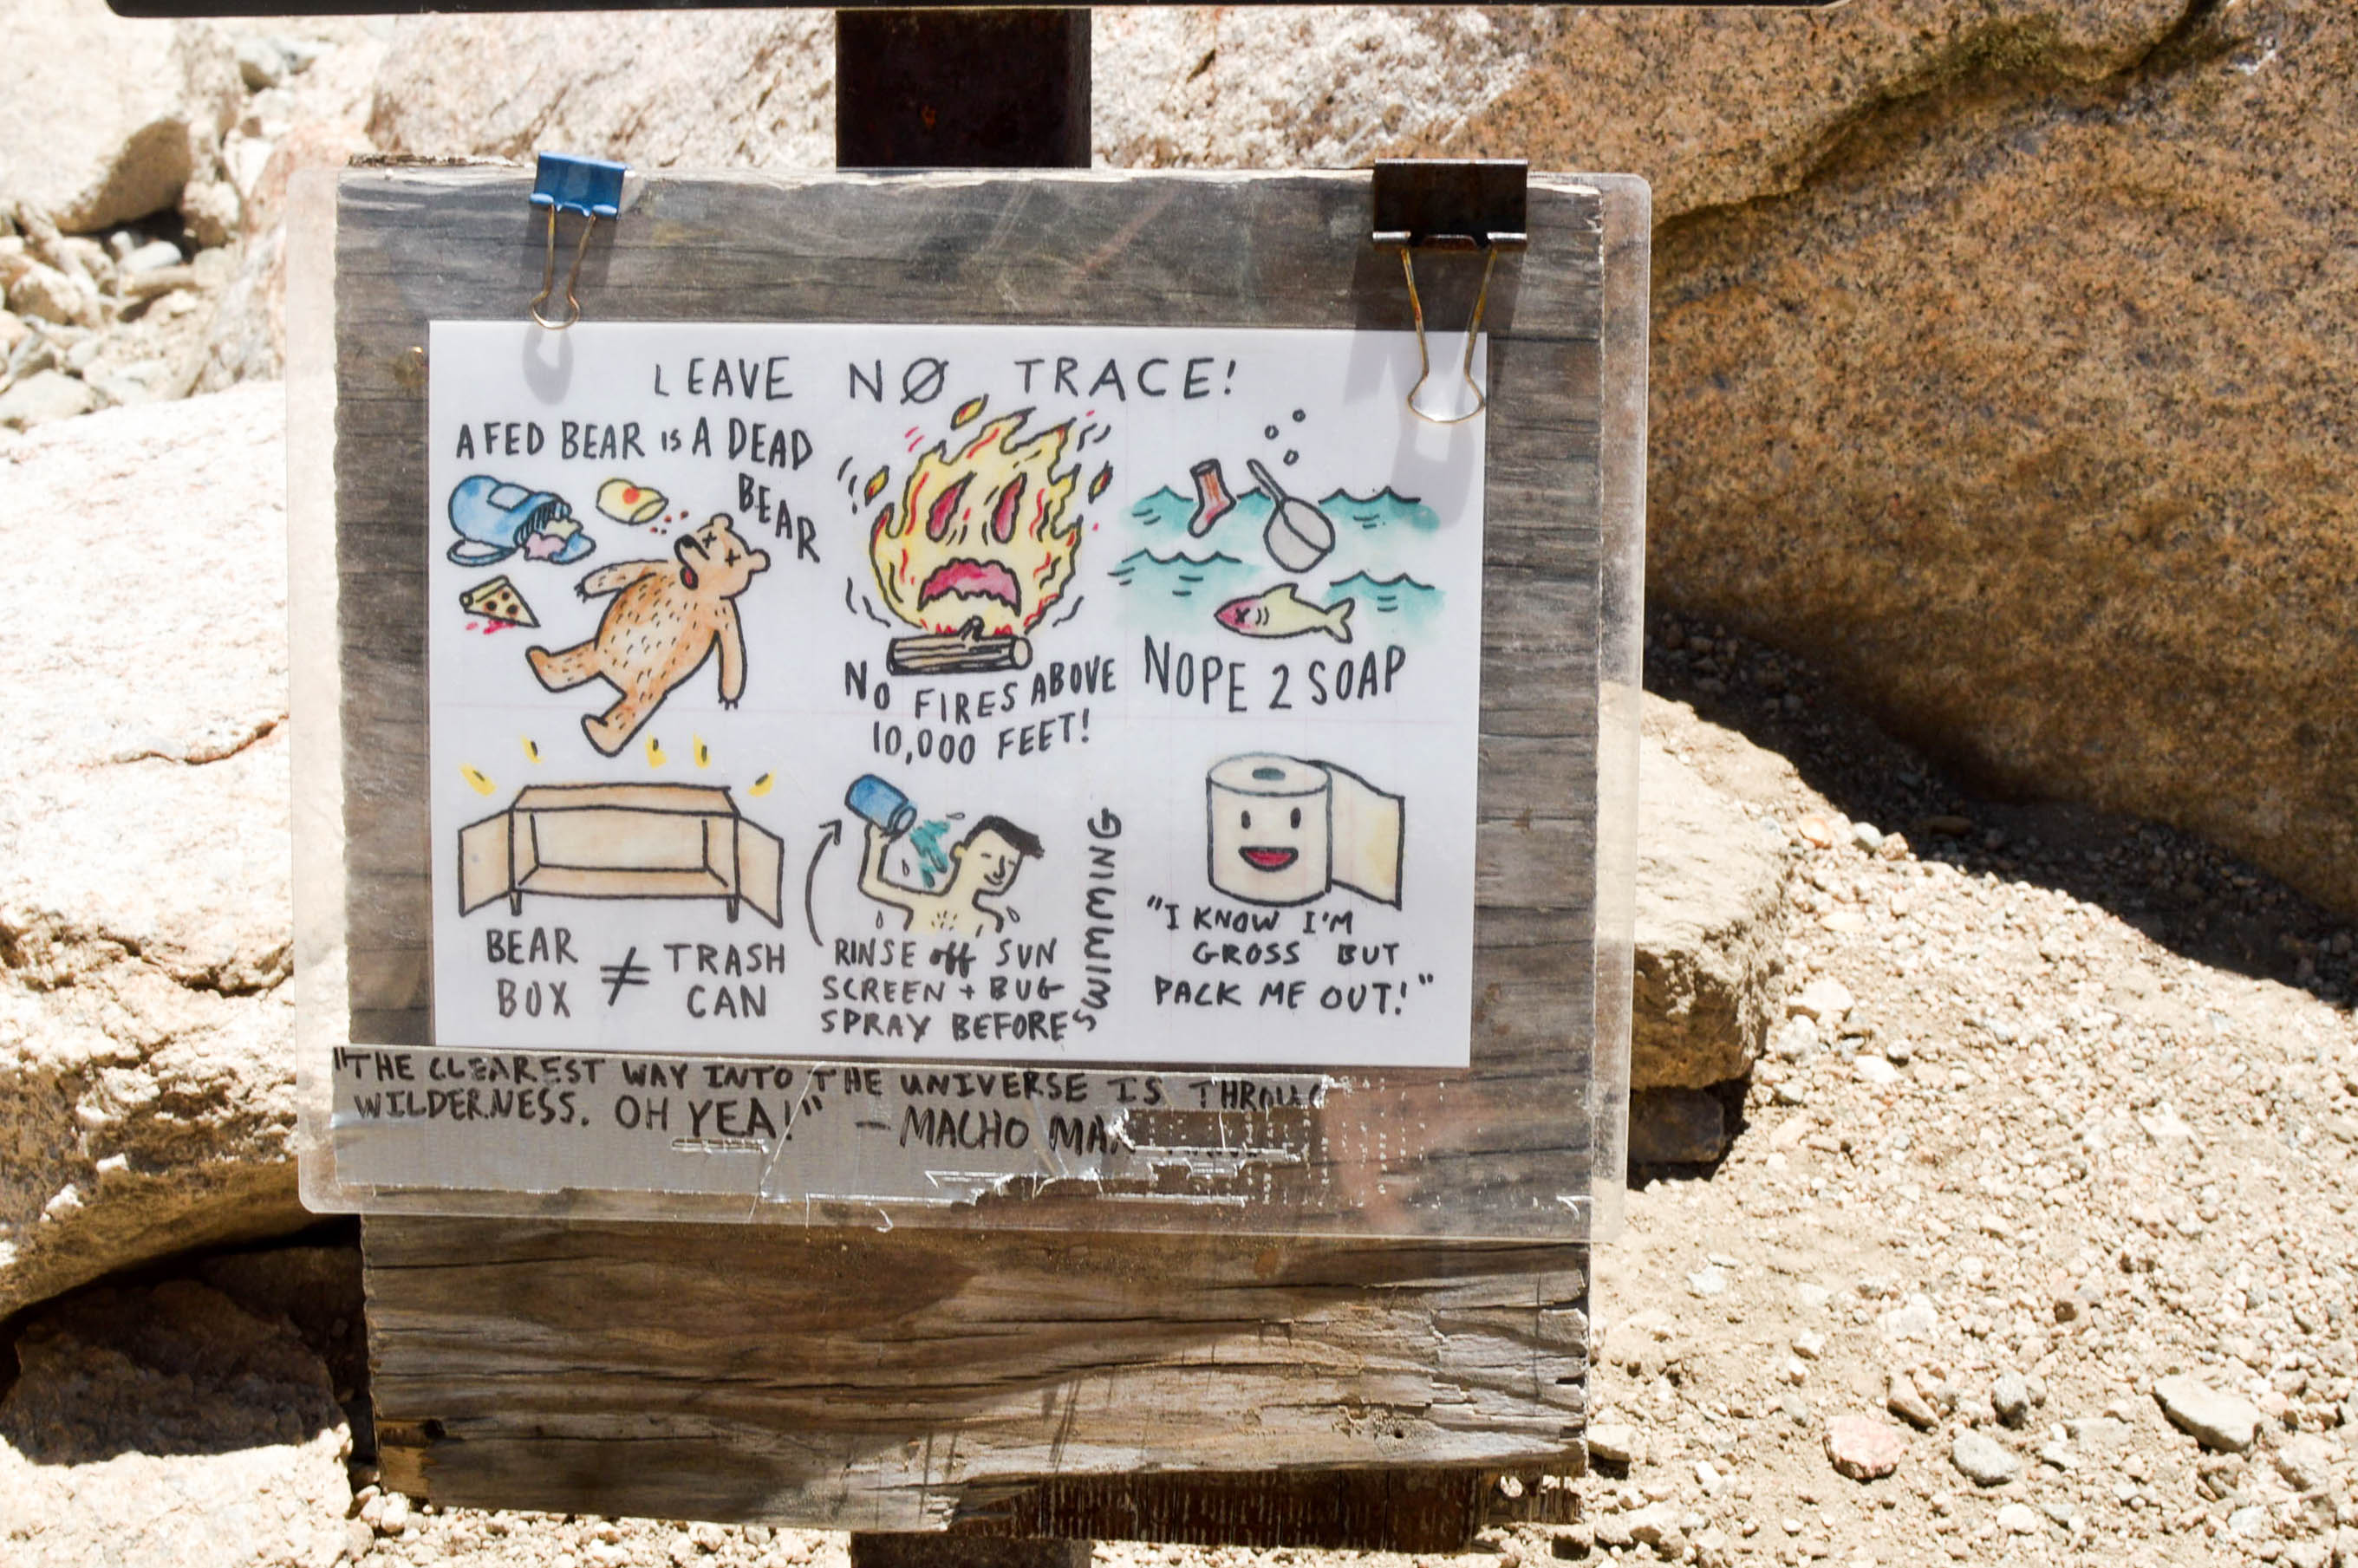 LEAVE NØ TRACE!
A FED BEAR IS A DEAD
BEAR
NO FIRES ABOVE
10,000 FEET!
NOPE 2 SOAP
BEAR
BOX
≠
TRASH
CAN
RINSE off SUN
SCREEN + BUG
SPRAY BEFORE
SWIMMING
"I KNOW I'M
GROSS BUT
PACK ME OUT!"
"THE CLEAREST WAY INTO THE UNIVERSE IS
WILDERNESS. OH YEA!" - MACHO